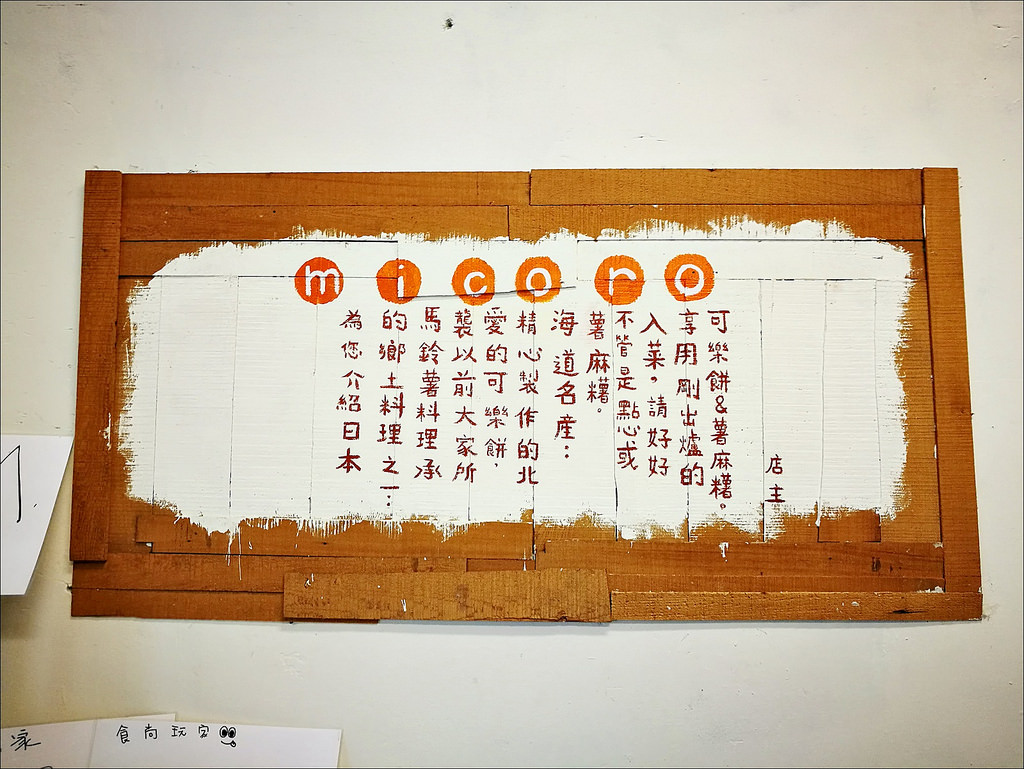 micoro
為您介紹日本
的鄉土料理之一：
馬鈴薯料理承
襲以前大家所
愛的可樂餅，
精心製作的北
海道名產：
薯麻糬。
不管是點心或
入菜，請好好
享用剛出爐的
可樂餅&薯麻糬。
店主
食尚玩家